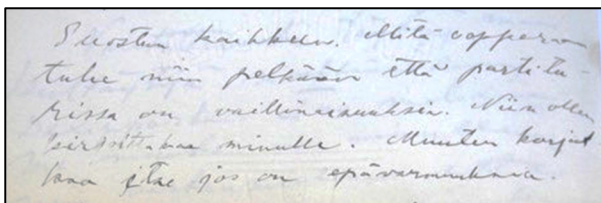 Suostun kaikkeen. Mitä oopperaan
tulee niin pelkään että partitu-
rissa on vaillinaisuuksia. Niin ollen
kirjoittakaa minulle. Muuten korjat
kaa itse jos on epävarmuuksia.